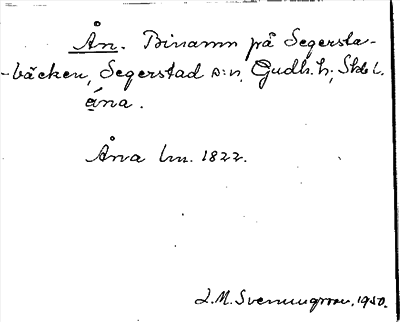 Ån. Binamn på Segersta-
-bäcken, Segerstad s:n, Gudh. h; Skb l.
åna.
Åva lm. 1822.
L.M. Svenungsson, 1950.